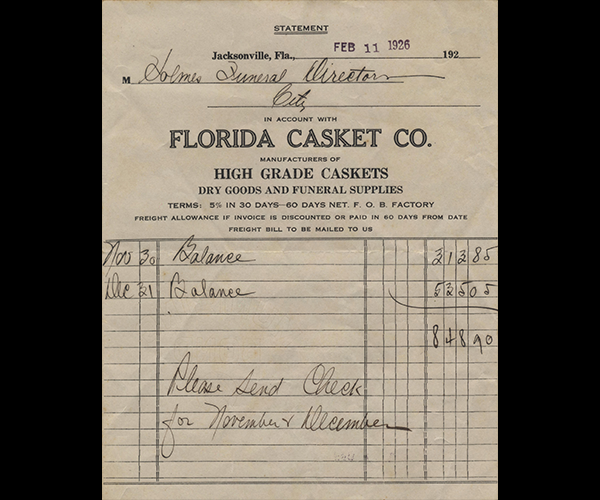 STATEMENT
Jacksonville, Fla., FEB 11 1926 192
M Holmes Funeral Directors
City
IN ACCOUNT WITH
FLORIDA CASKET CO.
MANUFACTURERS OF
HIGH GRADE CASKETS
DRY GOODS AND FUNERAL SUPPLIES
TERMS: 5% IN 30 DAYS—60 DAYS NET. F. O. B. FACTORY
FREIGHT ALLOWANCE IF INVOICE IS DISCOUNTED OR PAID IN 60 DAYS FROM DATE
FREIGHT BILL TO BE MAILED TO US
Nov 30 Balance 313 85
Dec 31 Balance 535 05
848 90
Please send Check
for November & December